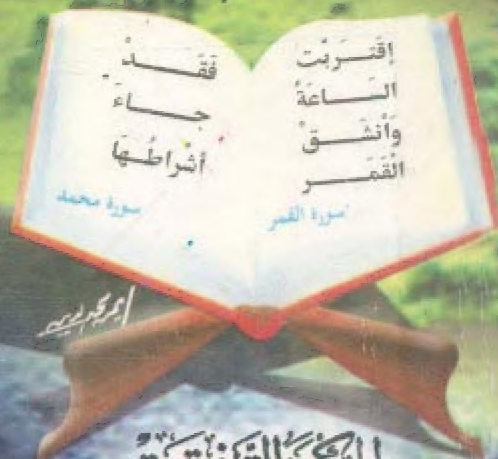 إقتَرَبَت
السَّاعَةُ
وَأنشَقَّ
القَمَر
سورة القمر
فَقَدْ
جَاءَ
أشْراطُهَا
سورة محمد